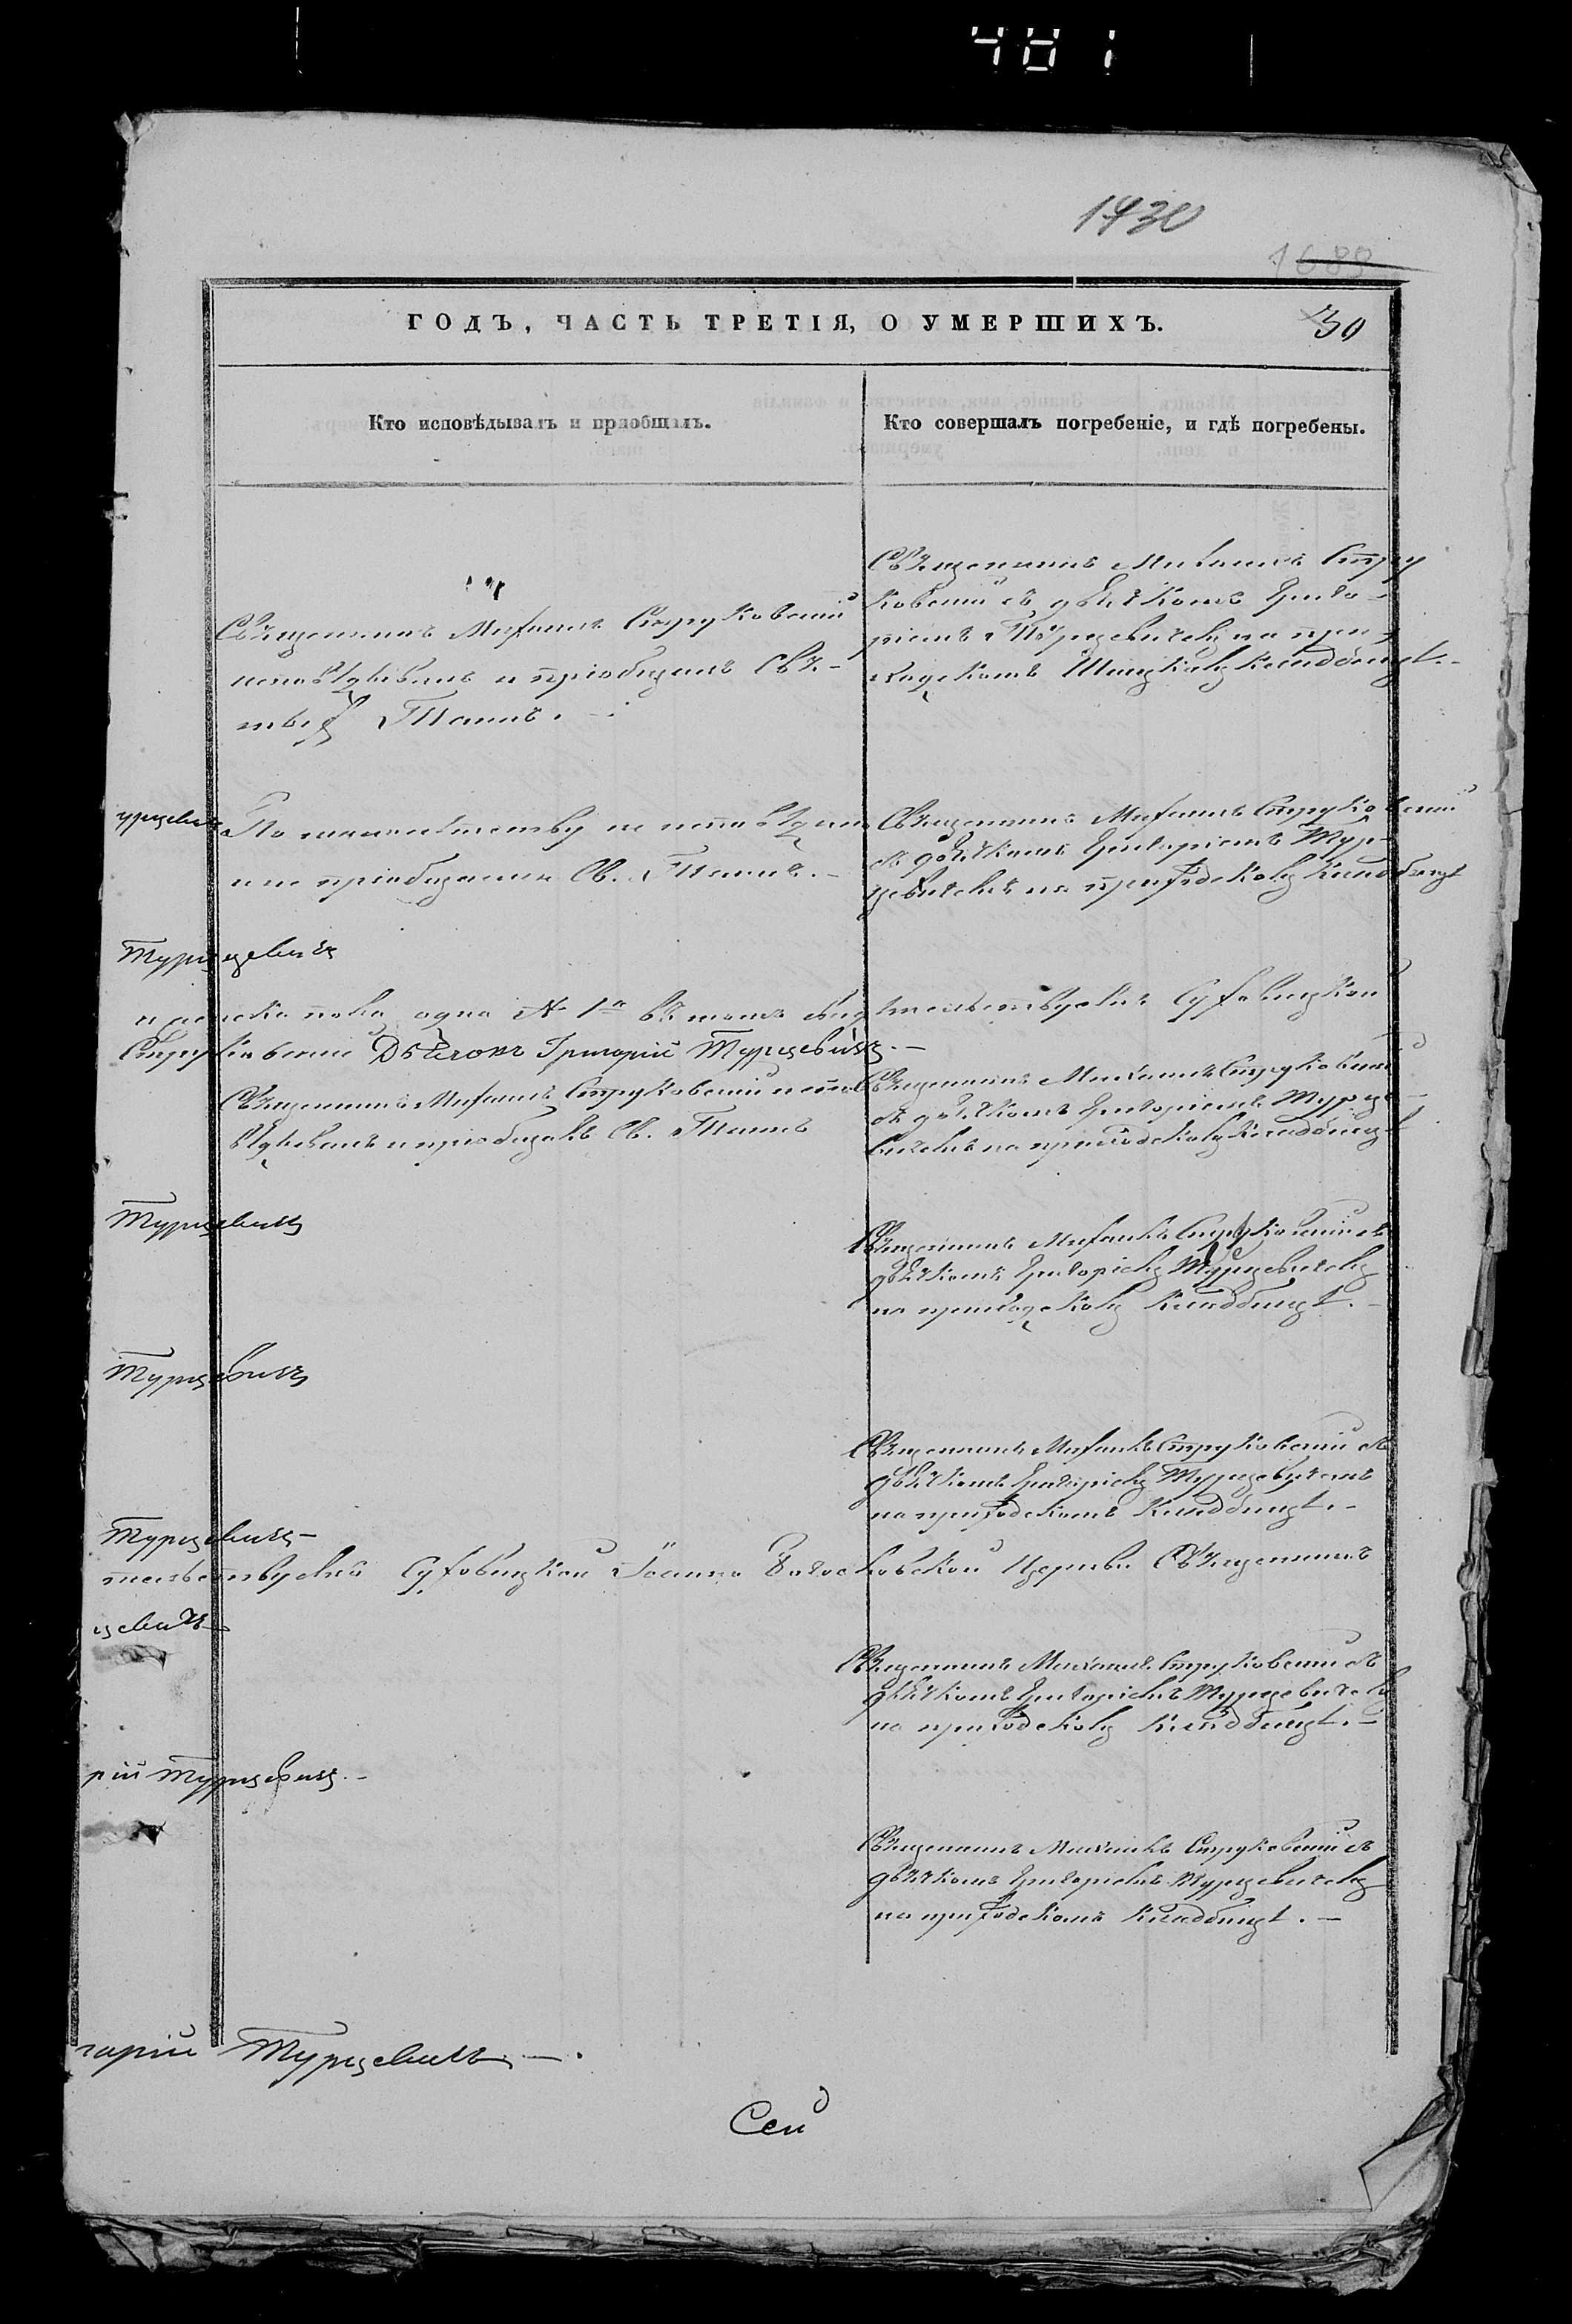 481
1430
1688
ГОДЪ, ЧАСТЬ ТРЕТІЯ, О УМЕРШИХЪ.
30
Кто исповѣдывалъ и пріобщалъ.
Кто совершалъ погребеніе, и гдѣ погребены.
Священникъ Михаилъ Струковскій
исповѣдывалъ и пріобщалъ Свя-
тыхъ Таинъ.
Священникъ Михаилъ Стру
ковскій съ дьячкомъ Григо-
ріемъ Турцевичемъ на при-
ходскомъ кладбищѣ.-
урцевичъ
По малолѣтству не исповѣданъ
и не пріобщенъ Св. Таинъ.-
Священникъ Михаилъ Струковскій
съ дьячкомъ Григоріемъ Тур-
цевичемъ на приходскомъ кладбищѣ
Турцевичъ
одна № 1й въ томъ свидѣтельствуемъ Суховицкой
Струковскій Дьячокъ Григорій Турцевичъ.-
Священникъ Михаилъ Струковскій испо
вѣдывалъ и пріобщалъ Св. Таинъ
Священникъ Михаилъ Струковскій
съ дьячкомъ Григоріемъ Турце-
вичемъ на приходскомъ кладбищѣ
Турцевичъ
Священникъ Михаилъ Струковскій съ
дьячкомъ Григоріемъ Турцевичемъ
на приходскомъ кладбищѣ.-
Турцевичъ
Священникъ Михаилъ Струковскій съ
дьячкомъ Григоріемъ Турцевичемъ
на приходскомъ кладбищѣ.-
Турцевичъ-
тельствуемъ Суховицкой Іоанно Богословской Церкви Священникъ
цевичъ
Священникъ Михаилъ Струковскій съ
дьячкомъ Григоріемъ Турцевичемъ
на приходскомъ кладбищѣ.-
рій Турцевичъ.-
Священникъ Михаилъ Струковскій съ
дьячкомъ Григоріемъ Турцевичемъ
на приходскомъ кладбищѣ.-
горій Турцевичъ.-
Сей